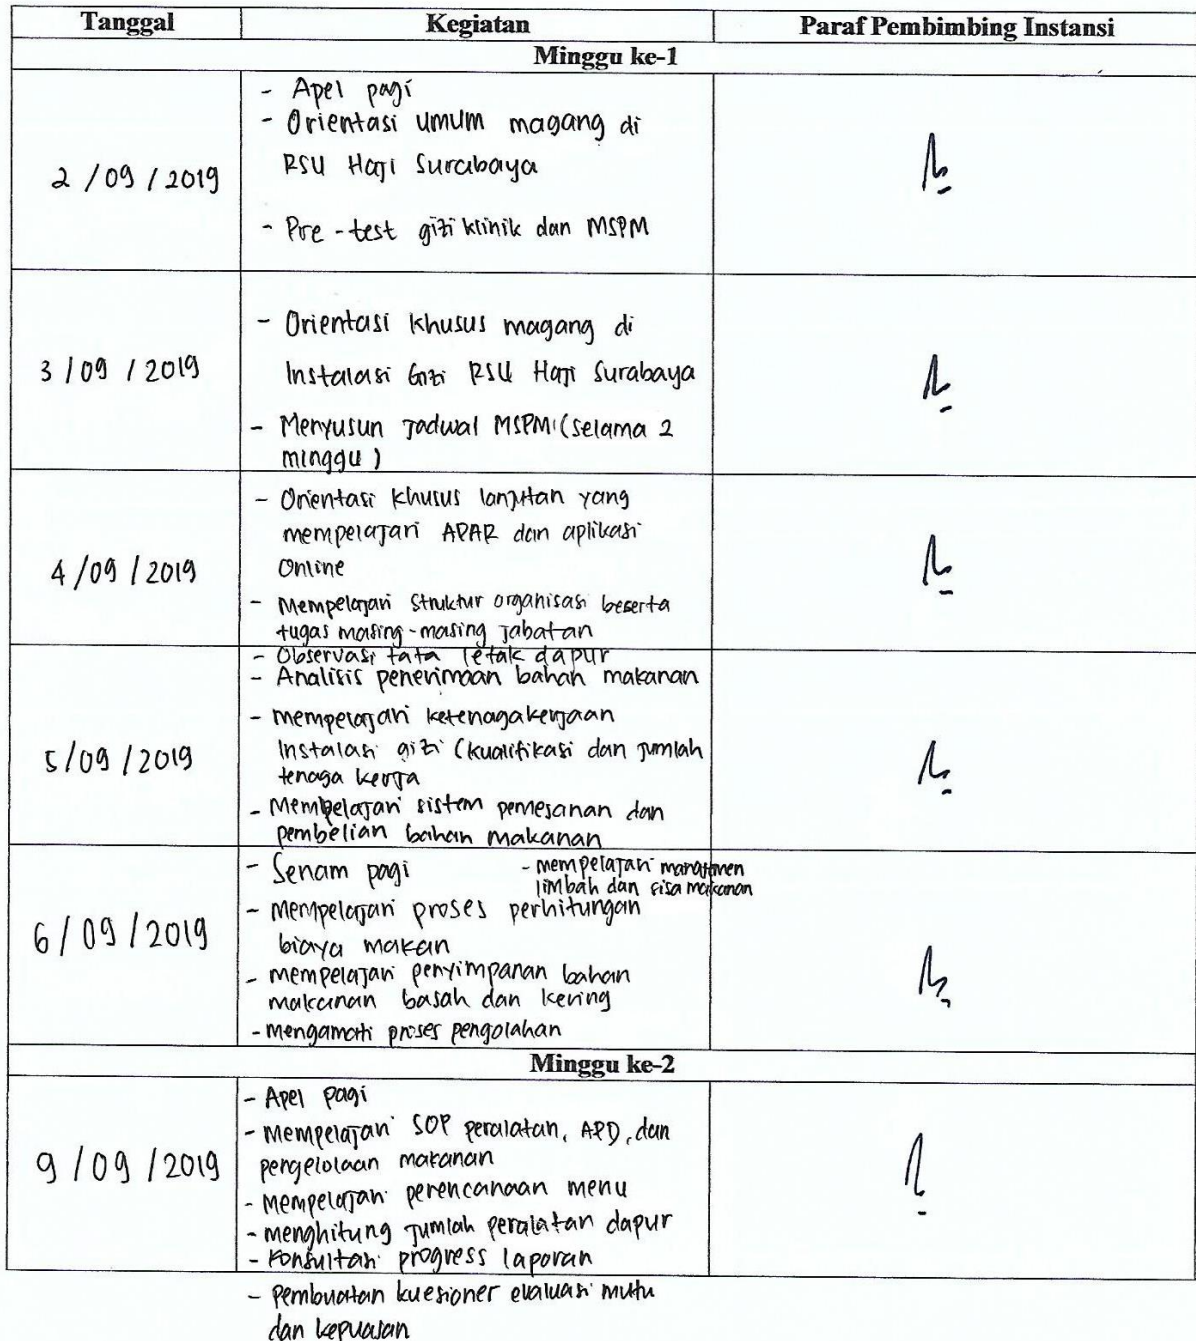 Tanggal Kegiatan Paraf Pembimbing Instansi
Minggu ke-1
2/09/2019
- Apel pagi
- Orientasi umum magang di
RSU Haji Surabaya
- Pre-test gizi klinik dan MSPM
3/09/2019
- Orientasi khusus magang di
Instalasi Gizi RSU Haji Surabaya
- Menyusun Jadwal MSPM (selama 2
minggu)
4/09/2019
- Orientasi khusus lanjutan yang
mempelajari APAR dan aplikasi
Online
- Mempelajari struktur organisasi beserta
tugas masing-masing jabatan
- Observasi tata letak dapur
5/09/2019
- Analisis penerimaan bahan makanan
- mempelajari ketenagakerjaan
Instalasi gizi (kualifikasi dan jumlah
tenaga kerja
- Mempelajari sistem pemesanan dan
pembelian bahan makanan
6/09/2019
- Senam pagi
- mempelajari manajemen
limbah dan sisa makanan
- Mempelajari proses perhitungan
biaya makan
- mempelajari penyimpanan bahan
makanan basah dan kering
- mengamati proses pengolahan
Minggu ke-2
9/09/2019
- Apel pagi
- Mempelajari SOP peralatan, APD, dan
pengelolaan makanan
- Mempelajari perencanaan menu
- menghitung jumlah peralatan dapur
- Konsultasi progress laporan
- Pembuatan kuesioner evaluasi mutu
dan kepuasan